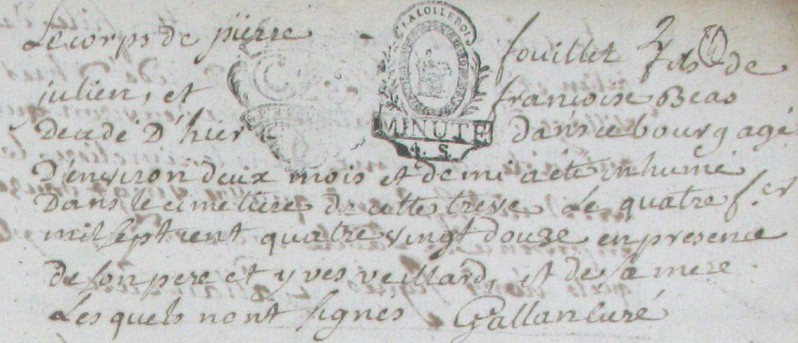 Le corps de pierre fouillet fils de
LA LOI LE ROI
julien, et francoise Beas
MINUTE
4. S.
Decedé D'hier dans ce bourg agé
D'environ deux mois et demi a eté inhumé
Dans le cimetiere de cette treve Le quatre f.er
mil sept cent quatre vingt douze en presence
de son pere et yves veillard, et de sa mere
Les quels n'ont signes Gallan curé